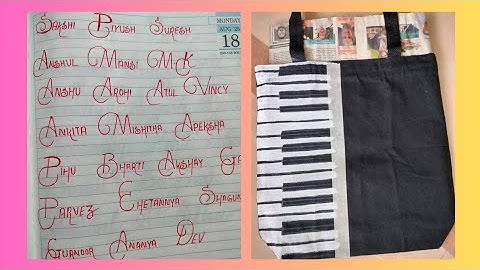 Sakshi Piyush Suresh
MONDAY
AUG '25
18
Anshul Mansi M.K
Anshu Arohi Atul Vincy
Ankita Mishitha Apeksha
Pihu Bharti Akshay Ga
Parvez Chetannya Shagun
Gurnoor Ananya Dev